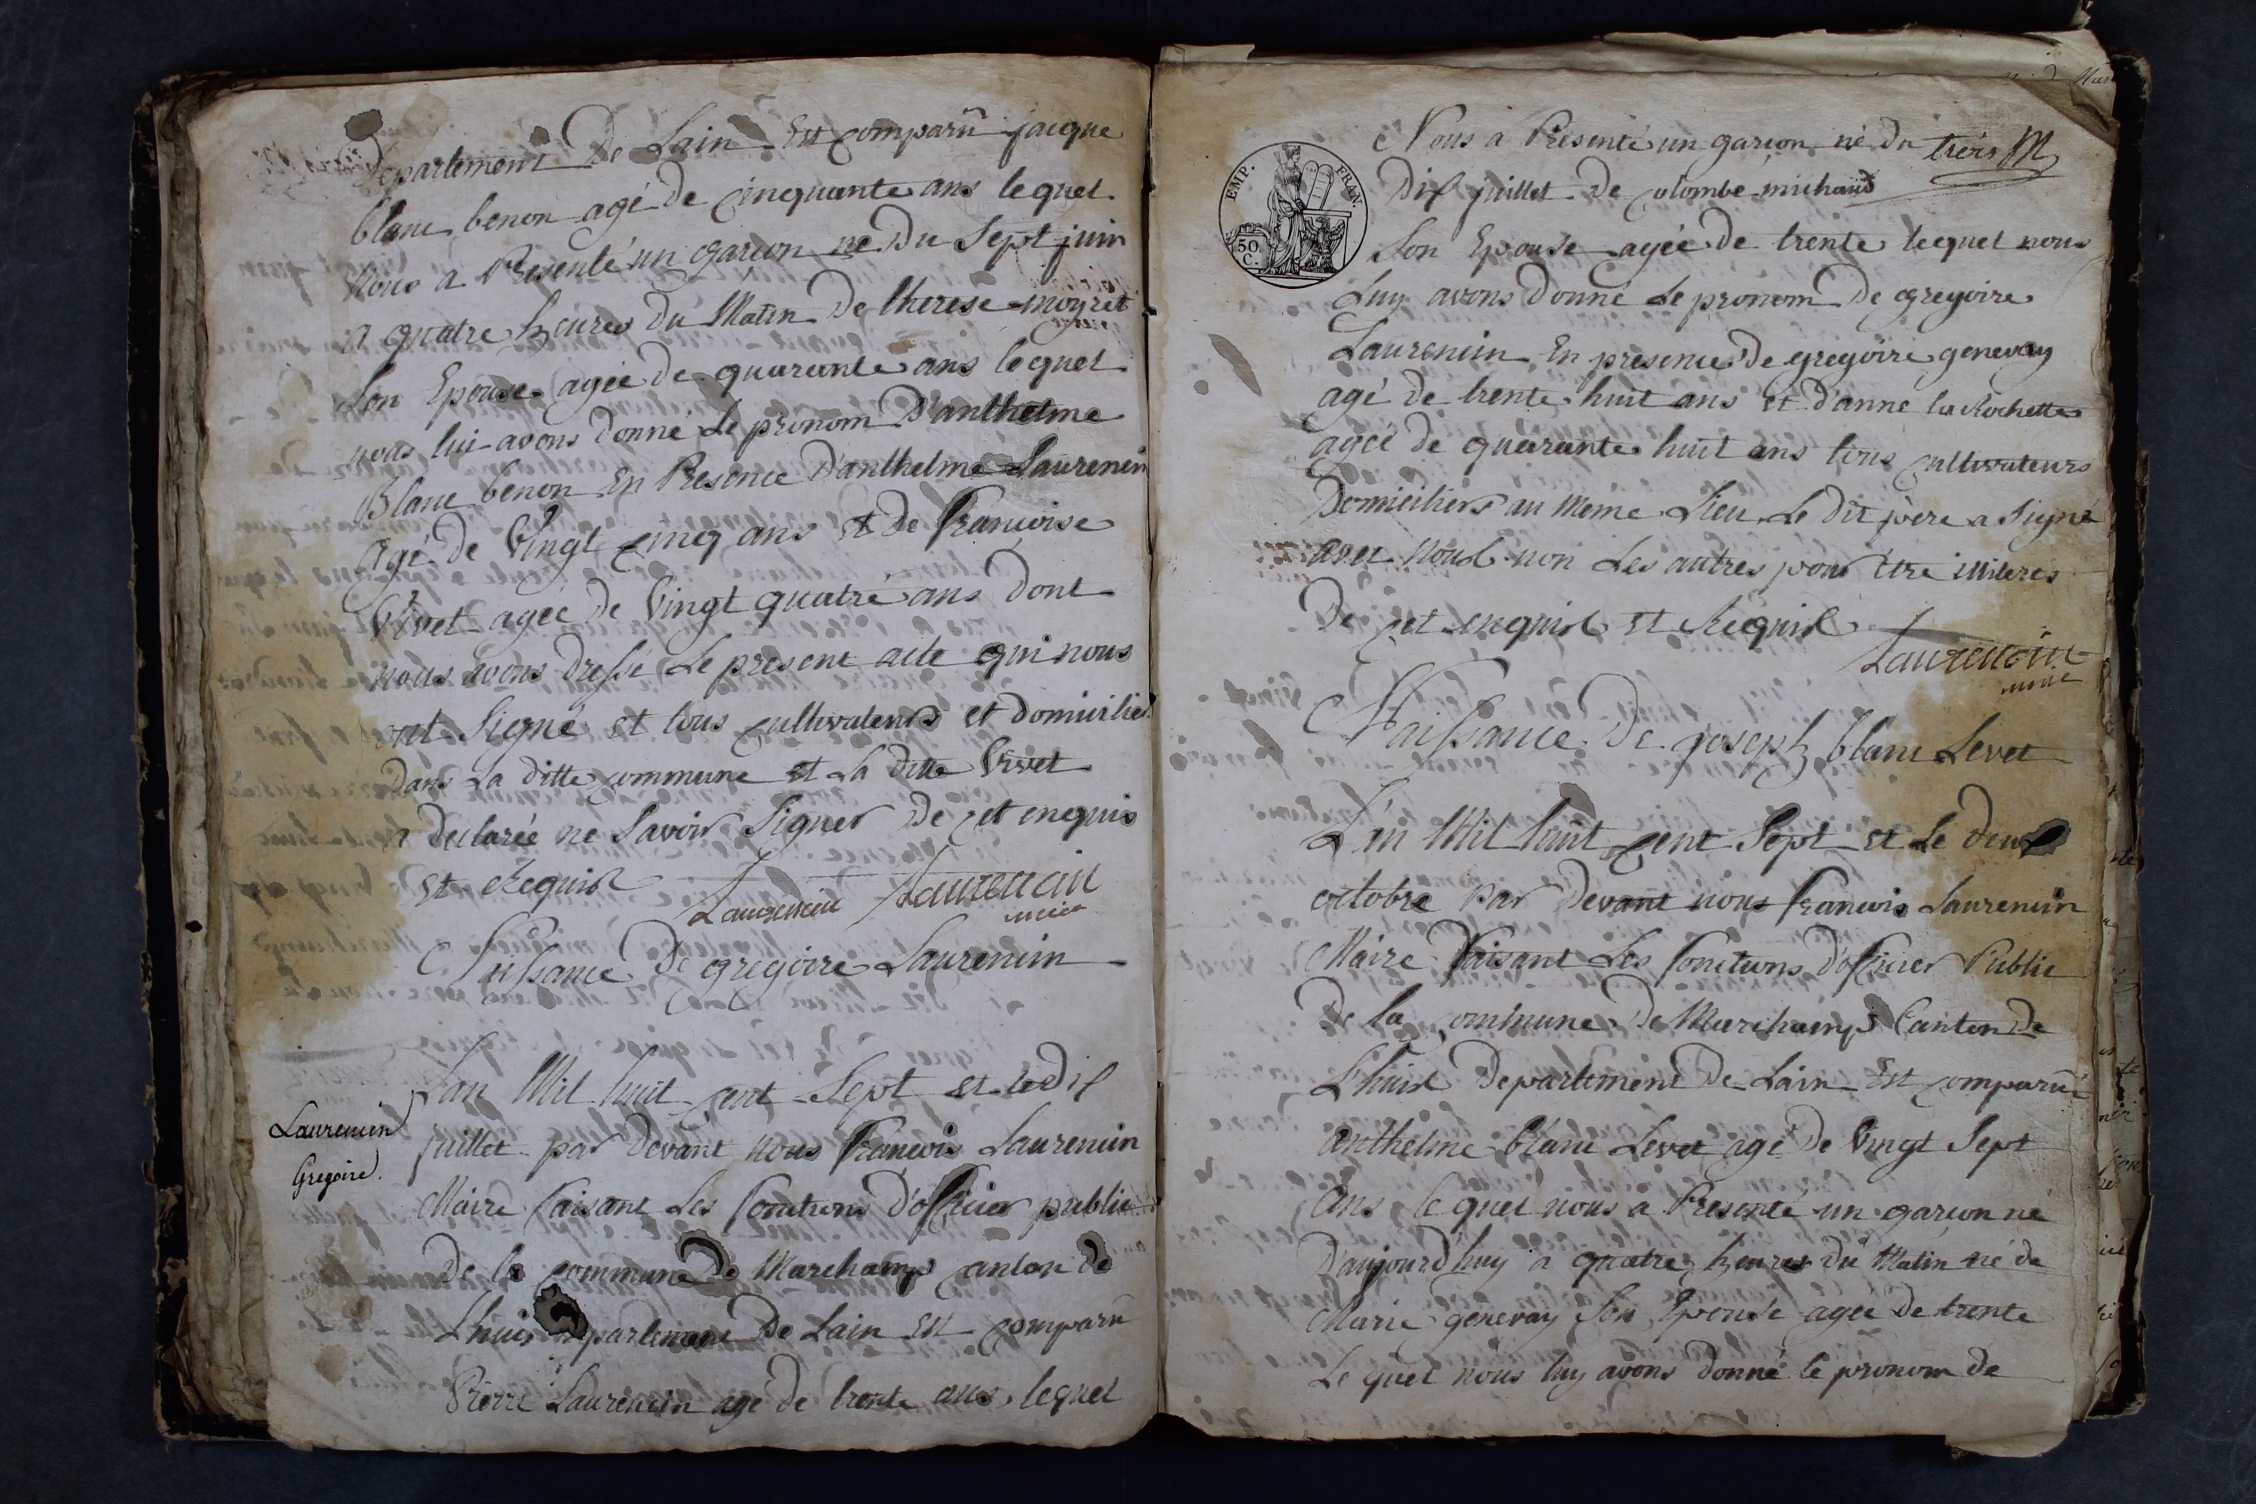 Departement De Lain Est comparû jacque
blanc benon agé de cinquante ans lequel
Nous a Présenté un garcon né Du Sept juin
a quatre heures du Matin De therese moyret
Son Epouse agée de quarante ans lequel
nous lui avons donné Le pronom D'anthelme
Blanc benon En Presence D'anthelme Laurencin
Agé De Vingt cinq ans Et de francoise
Vivet agée De Vingt quatre ans Dont
nous avons dressé Le present acte qui nous
ont Signé et tous cultivateurs et domicilies
Dans La ditte commune Et La ditte Vivet
a declarée ne Savoir Signer De cet enquis
Et Requis
Laurencin Laurencin
maire
Naissance De gregoire Laurencin
Laurencin
Gregoire.
Lan Mil huit cent Sept et le Dix
juillet par Devant Nous francois Laurencin
Maire faisant Les fonctions D'officier public
De la commune De Marchamp canton de
Lhuis Departement De Lain Est comparû
Pierre Laurencin agé De trente ans lequel
EMP. FRAN.
50.
C.
trois
Nous a Présenté un garcon né Du
Dix juillet De colombe michaud
Son Epouse agée De trente lequel nous
Luy avons Donné Le pronom De gregoire
Laurencin En presence De gregoire genevay
agé De trente huit ans Et D'anne la Rochette
agée De quarante huit ans tous cultivateurs
Domiciliers au Même Lieu Le Dit père a Signé
avec Nous non Les autres pour être illiteres
De cet enquis Et Requis
Laurencin
maire
Naissance De joseph blanc Levet
L'an Mil huit cent Sept et Le deux
octobre Par Devant nous francois Laurencin
Maire Faisant Les fonctions D'officier Public
De la commune De Marchamp Canton De
Lhuis Departement De Lain Est comparû
anthelme blanc Levet agé De Vingt Sept
Ans le quel nous a Presenté un garcon né
D'aujourd'huy a quatre heures Du Matin né de
Marie genevay Son Epouse agée De trente
Le quel nous luy avons donné le pronom de